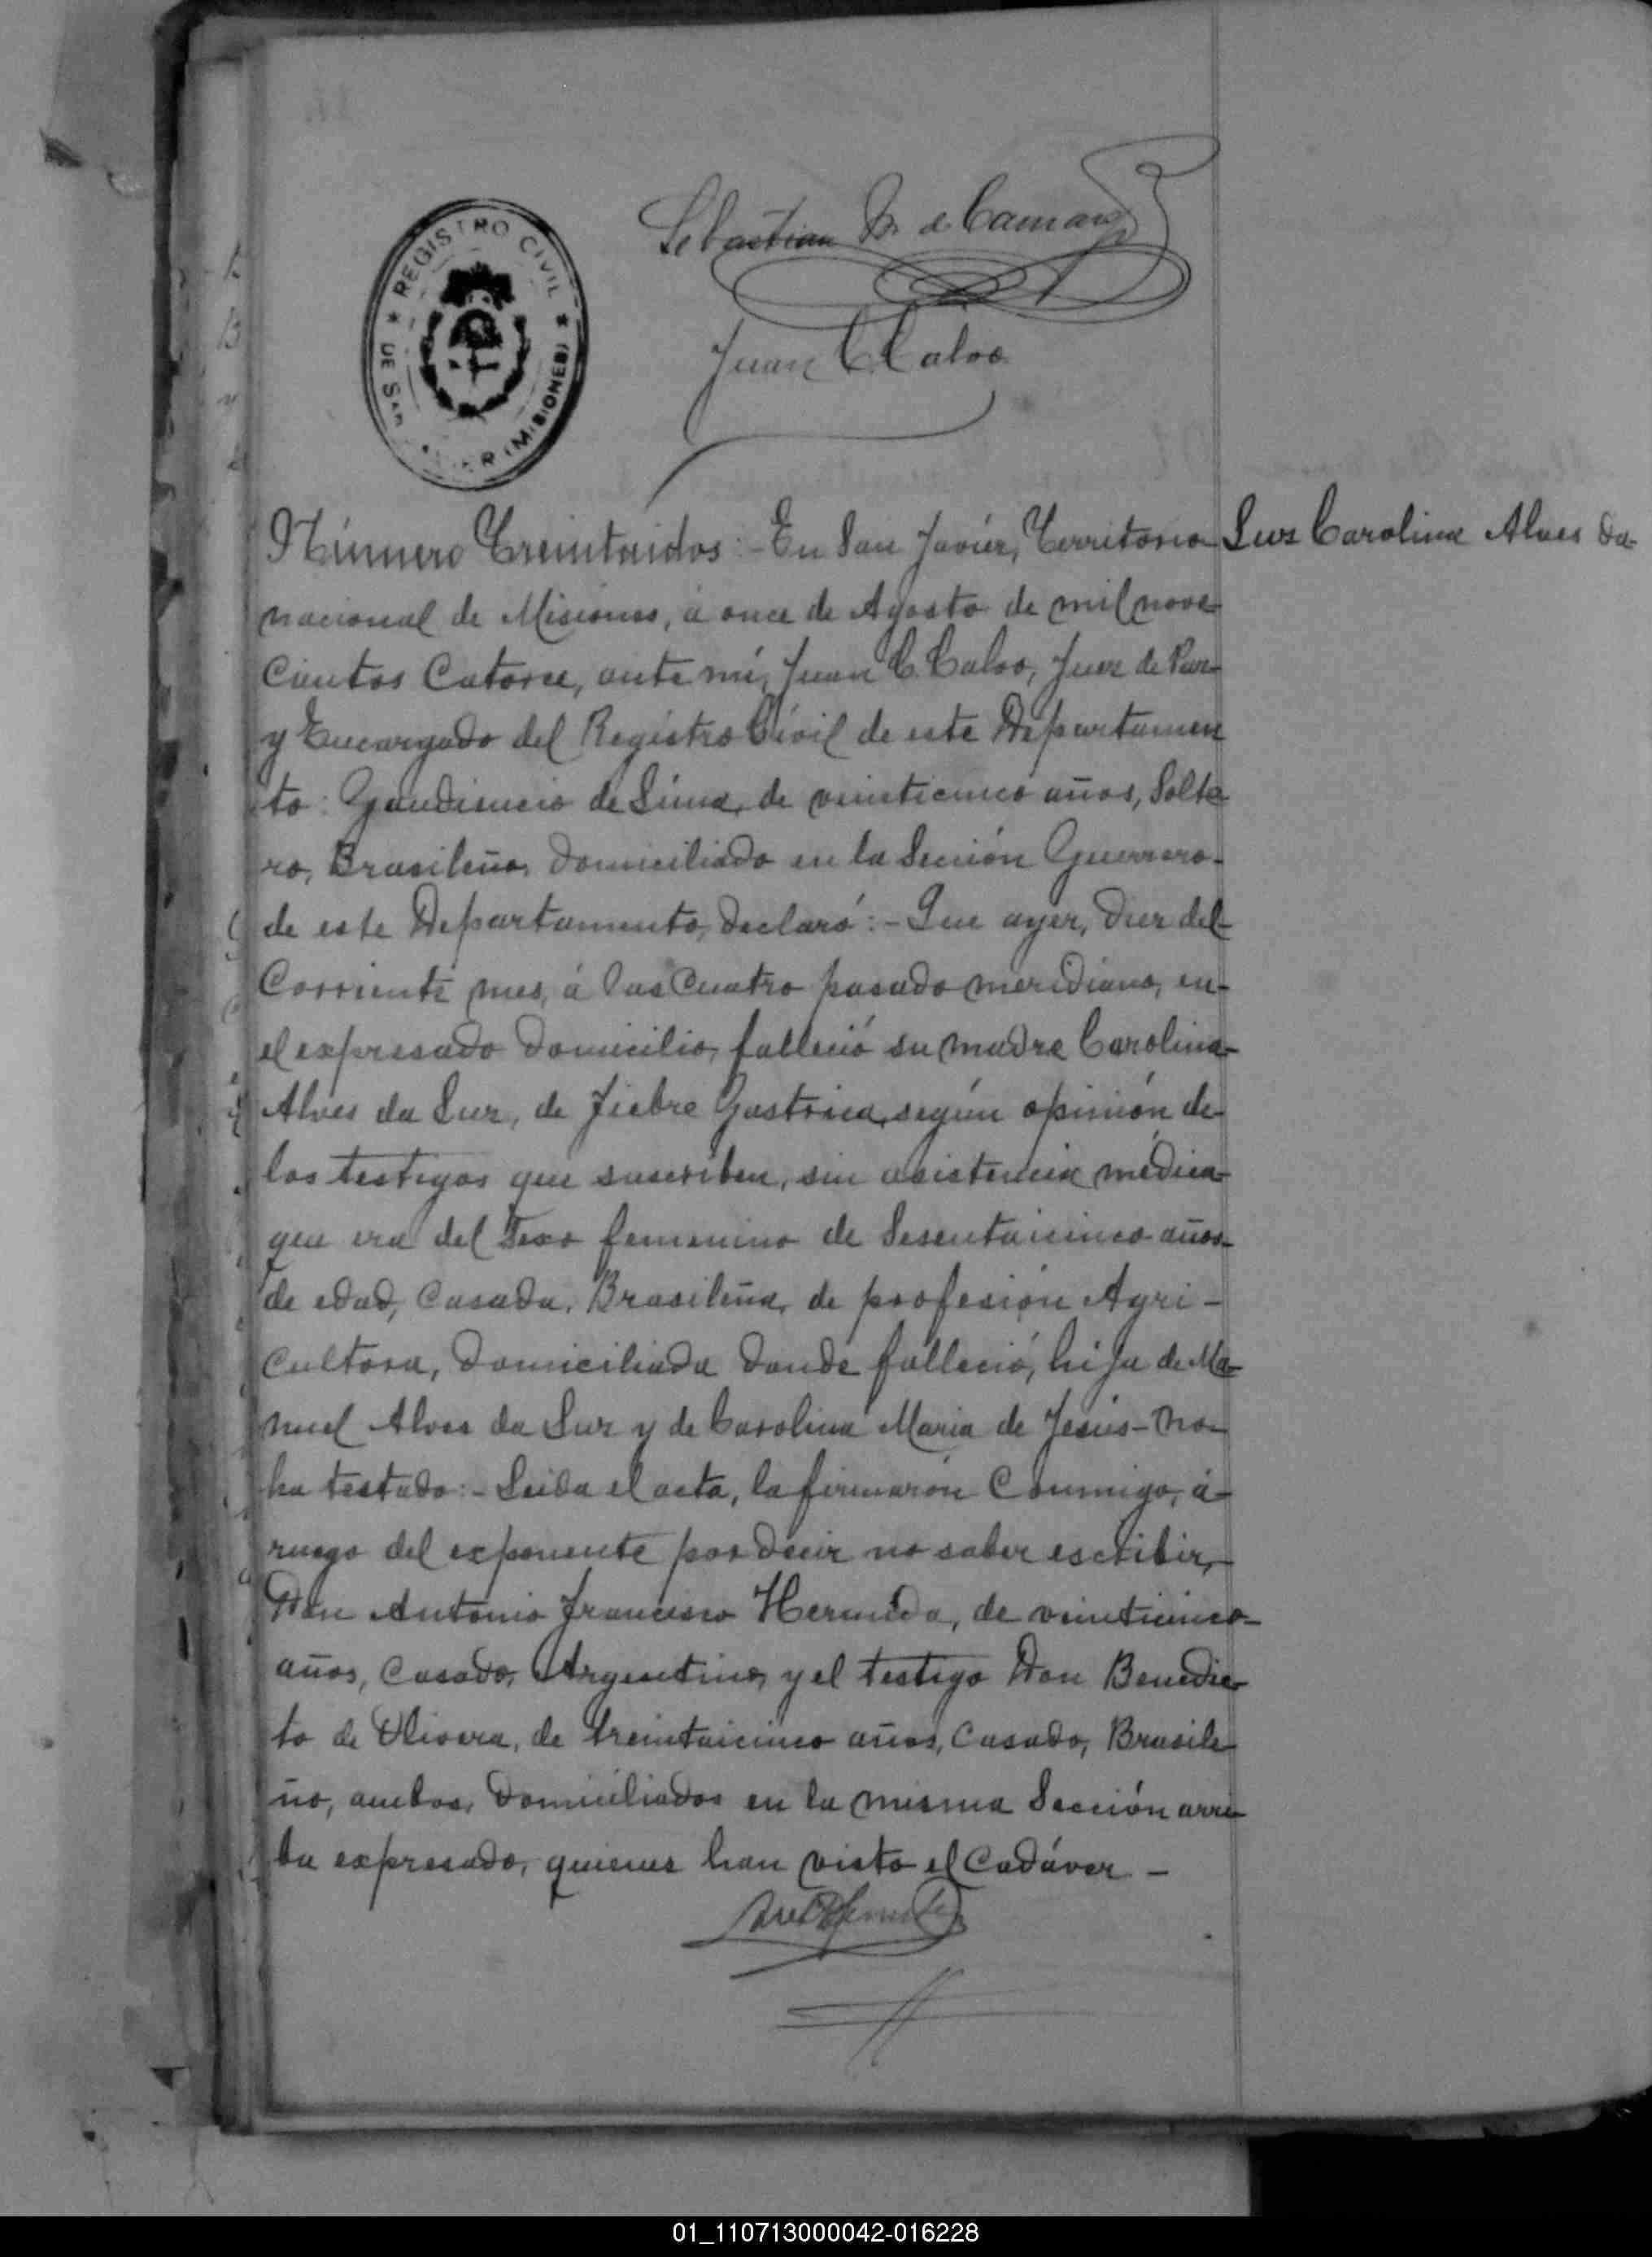 Sebastian M. de Camara
★ REGISTRO CIVIL ★
DE SAN
R (MISIONES)
Juan C Calvo
Número Treintaidos:- En San Javier, Territorio
Luz Carolina Alves da
nacional de Misiones, á once de Agosto de mil nove
cientos Catorce, ante mí, Juan C. Calvo, Juez de Paz
y Encargado del Registro Civil de este Departamen
to: Gaudencio de Lima, de veinticinco años, Solte
ro, Brasileño, domiciliado en la Sección Guerrero-
de este Departamento, declaró:- Que ayer, diez del
Corriente mes, á las Cuatro pasado meridiano, en-
el expresado domicilio, falleció su madre Carolina-
Alves da Luz, de fiebre Gastrica, según opinión de-
los testigos que suscriben, sin asistencia médica-
que era del Sexo femenino de Sesentaicinco años-
de edad, Casada, Brasileña, de profesión Agri-
cultora, domiciliada donde falleció, hija de Ma-
nuel Alves da Luz y de Carolina Maria de Jesús- no-
ha testado:- Leida el acta, la firmarón Conmigo, á-
ruego del exponente por decir no saber escribir,-
Don Antonio Francisco Hermida, de veinticinco-
años, Casado, Argentino, y el testigo Don Benedic-
to de Olivera, de treintaicinco años, Casado, Brasile-
ño, ambos, domiciliados en la misma Sección arri-
ba expresado, quienes han visto el Cadáver.-
01_110713000042-016228